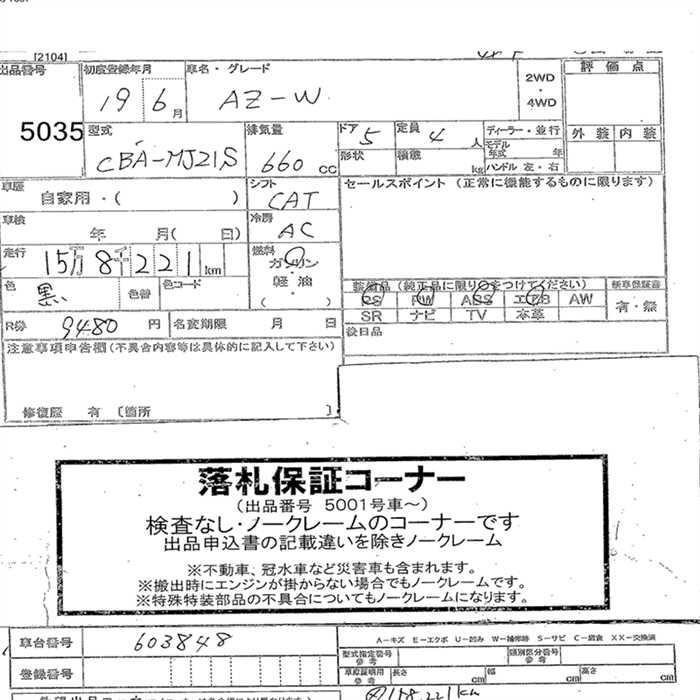 [2104]
出品番号 初度登録年月 車名・グレード 2WD・4WD 評価点
5035 19 6月 AZ-W
型式 排気量 ドア 5 定員 4人 ディーラー・並行 外装 内装
CBA-MJ21S 660cc 形状 積載 kg モデル年式 年 ハンドル 左・右
車歴 自家用・( ) シフト CAT セールスポイント (正常に機能するものに限ります)
車検 年 月( 日) 冷房 AC
走行 15万8千221km 燃料 ガソリン 軽油 ( )
色 黒 色替 色コード 装備品 (純正品に限り○をつけてください) 新車保証書
PS PW ABS エアB AW 有・無
SR ナビ TV 本革
R券 9480円 名変期限 月 日 後日品
注意事項申告欄(不具合内容等は具体的に記入して下さい)
修復歴 有 〔箇所 〕
落札保証コーナー
(出品番号 5001号車~)
検査なし・ノークレームのコーナーです
出品申込書の記載違いを除きノークレーム
※不動車、冠水車など災害車も含まれます。
※搬出時にエンジンが掛からない場合でもノークレームです。
※特殊特装部品の不具合についてもノークレームになります。
車台番号 603848 A-キズ E-エクボ U-凹み W-補修跡 S-サビ C-腐食 XX-交換済
型式指定番号 参考 類別区分番号 参考
登録番号 車庫証明用 参考 長さ cm 幅 cm 高さ cm
158,221km